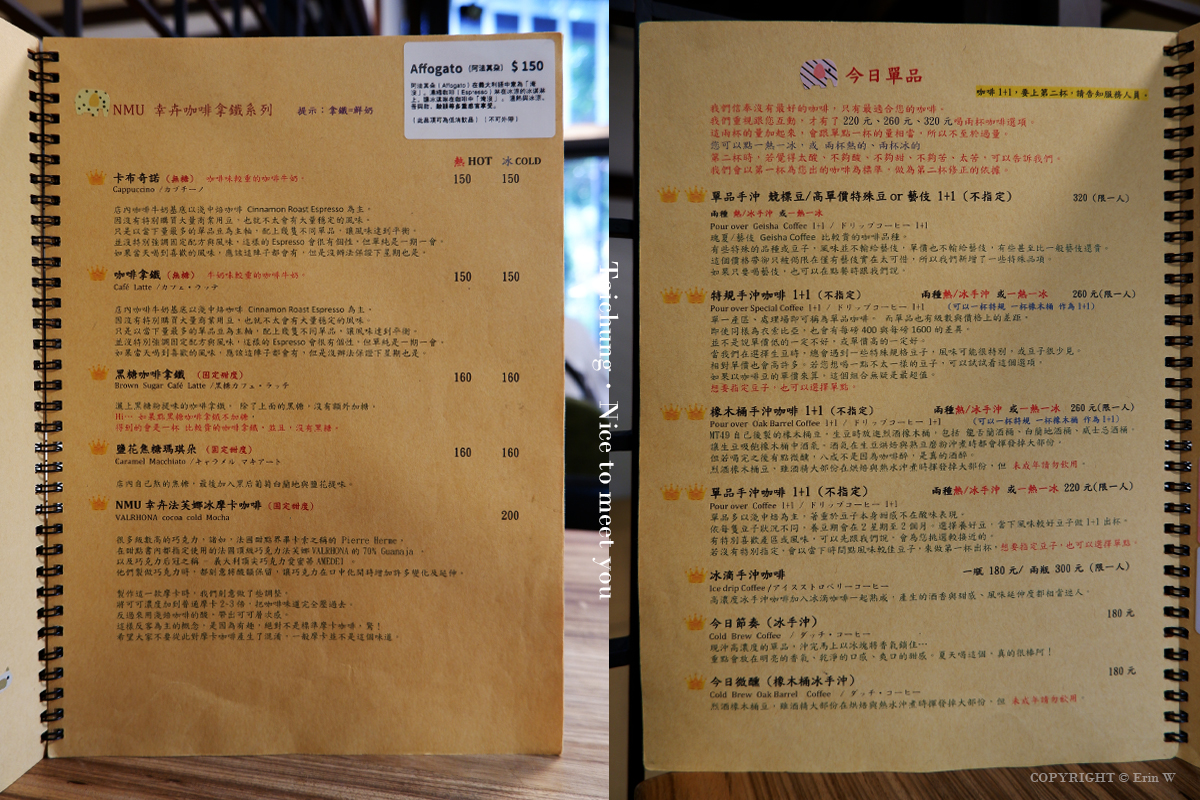 Affogato (阿法其朵) $150
阿法其朵 (Affogato) 在義大利語中意為「淹
(此品項可為低消飲品) (不可外帶)
NMU 幸卉咖啡拿鐵系列 提示：拿鐵=鮮奶
熱 HOT 冰 COLD
卡布奇諾 (無糖) 咖啡味較重的咖啡牛奶。 150 150
Cappuccino /カプチーノ
店內咖啡牛奶基底以淺中焙咖啡 Cinnamon Roast Espresso 為主。
因沒有特別購買大量商業用豆，也就不太會有大量穩定的風味。
只是以當下量最多的單品豆為主軸，配上幾隻不同單品，讓風味達到平衡。
並沒特別強調固定配方與風味，這樣的 Espresso 會很有個性，但單純是一期一會。
如果當天喝到喜歡的風味，應該這陣子都會有，但是沒辦法保證下星期也是。
咖啡拿鐵 (無糖) 牛奶味較重的咖啡牛奶。 150 150
Café Latte /カフェ・ラッテ
店內咖啡牛奶基底以淺中焙咖啡 Cinnamon Roast Espresso 為主。
因沒有特別購買大量商業用豆，也就不太會有大量穩定的風味。
只是以當下量最多的單品豆為主軸，配上幾隻不同單品，讓風味達到平衡。
並沒特別強調固定配方與風味，這樣的 Espresso 會很有個性，但單純是一期一會。
如果當天喝到喜歡的風味，應該這陣子都會有，但是沒辦法保證下星期也是。
黑糖咖啡拿鐵 (固定甜度) 160 160
Brown Sugar Café Latte /黒糖カフェ・ラッテ
灑上黑糖粉提味的咖啡拿鐵， 除了上面的黑糖，沒有額外加糖。
Hi… 如果點黑糖咖啡拿鐵不加糖，
得到的會是一杯 比較貴的咖啡拿鐵，並且，沒有黑糖。
鹽花焦糖瑪琪朵 (固定甜度) 160 160
Caramel Macchiato /キャラメル マキアート
店內自己熬的焦糖，最後加入黑后葡萄白蘭地與鹽花提味。
NMU 幸卉法芙娜冰摩卡咖啡 (固定甜度) 200
VALRHONA cocoa cold Mocha
很多級數高的巧克力，諸如，法國甜點界畢卡索之稱的 Pierre Herme，
在甜點書內都指定使用的法國頂級巧克力法芙娜 VALRHONA 的 70% Guanaja ，
以及巧克力后冠之稱， 義大利頂尖巧克力愛蜜蒂 AMEDEI 。
他們製做巧克力時，都刻意將酸韻保留，讓巧克力在口中化開時增加許多變化及延伸。
製作這一款摩卡時，我們刻意做了些調整，
將可可濃度加到普通摩卡 2-3 倍，把咖啡味道完全壓過去。
反過來用淺焙咖啡的酸，帶出可可層次感。
這樣反客為主的概念，是因為有趣，絕對不是標準摩卡咖啡，驚！
希望大家不要從此對摩卡咖啡產生了混淆，一般摩卡並不是這個味道。
Taichung・Nice to meet you
今日單品
咖啡 1+1，要上第二杯，請告知服務人員。
我們信奉沒有最好的咖啡，只有最適合您的咖啡。
我們重視跟您互動，才有了 220 元、260 元、320 元喝兩杯咖啡選項。
這兩杯的量加起來，會跟單點一杯的量相當，所以不至於過量。
您可以點一熱一冰，或 兩杯熱的、兩杯冰的
第二杯時，若覺得太酸、不夠酸、不夠甜、不夠苦、太苦，可以告訴我們。
我們會以第一杯為您出的咖啡為標準，做為第二杯修正的依據。
單品手沖 競標豆/高單價特殊豆 or 藝伎 1+1 (不指定) 320 (限一人)
兩種 熱/冰手沖 或一熱一冰
Pour over Geisha Coffee 1+1 / ドリップコーヒー 1+1
瑰夏/藝伎 Geisha Coffee 比較貴的咖啡品種。
有些特殊的品種或豆子，風味並不輸給藝伎，單價也不輸給藝伎，有些甚至比一般藝伎還貴。
這個價格帶卻只能侷限在僅有藝伎實在太可惜，所以我們新增了一些特殊品項。
如果只要喝藝伎，也可以在點餐時跟我們說。
特規手沖咖啡 1+1 (不指定) 兩種熱/冰手沖 或一熱一冰 260 元(限一人)
Pour over Special Coffee 1+1 / ドリップコーヒー 1+1 (可以一杯特規 一杯橡木桶 作為 1+1)
單一產區、處理場即可稱為單品咖啡。 而單品也有級數與價格上的差距。
即使同樣為衣索比亞，也會有每磅 400 與每磅 1600 的差異。
並不是說單價低的一定不好，或單價高的一定好。
當我們在選擇生豆時，總會遇到一些特殊規格豆子，風味可能很特別，或豆子很少見。
相對單價也會高許多。若您想喝一點不太一樣的豆子，可以試試看這個選項。
如果以咖啡豆的單價來算，這個組合無疑是最超值。
想要指定豆子，也可以選擇單點。
橡木桶手沖咖啡 1+1 (不指定) 兩種熱/冰手沖 或一熱一冰 260 元(限一人)
Pour over Oak Barrel Coffee 1+1 / ドリップコーヒー 1+1 (可以一杯特規 一杯橡木桶 作為 1+1)
MT49 自己後製的橡木桶豆，生豆時放進烈酒橡木桶，包括 龍舌蘭酒桶，白蘭地酒桶，威士忌酒桶，
讓生豆吸飽橡木桶中酒氣。酒氣在生豆烘焙與熟豆磨粉沖煮時都會揮發掉大部份。
但若喝完之後有點微醺，八成不是因為咖啡醉，是真的酒醉。
烈酒橡木桶豆，雖酒精大部份在烘焙與熱水沖煮時揮發掉大部份，但 未成年請勿飲用。
單品手沖咖啡 1+1 (不指定) 兩種熱/冰手沖 或一熱一冰 220 元(限一人)
Pour over Coffee 1+1 / ドリップコーヒー 1+1
單品多以淺中焙為主，著重於豆子本身甜感不在酸味表現。
依每隻豆子狀況不同，養豆期會在 2 星期至 2 個月。選擇養好豆，當下風味較好豆子做 1+1 出杯。
有特別喜歡產區或風味，可以先跟我們說，會為您挑選較接近的。
若沒有特別指定，會以當下時間點風味較佳豆子，來做第一杯出杯。想要指定豆子，也可以選擇單點。
冰滴手沖咖啡 一瓶 180 元/ 兩瓶 300 元 (限一人)
Ice drip Coffee / アイスストロベリーコーヒー
高濃度冰手沖咖啡加入冰滴咖啡一起熟成，產生的酒香與甜感、風味延伸度都相當迷人。
今日節奏 (冰手沖) 180 元
Cold Brew Coffee / ダッチ・コーヒー
現沖高濃度的單品，沖完馬上以冰塊將香氣鎖住…
重點會放在明亮的香氣、乾淨的口感、爽口的甜感。夏天喝這個，真的很棒阿！
今日微醺 (橡木桶冰手沖) 180 元
Cold Brew Oak Barrel Coffee / ダッチ・コーヒー
烈酒橡木桶豆，雖酒精大部份在烘焙與熱水沖煮時揮發掉大部份，但 未成年請勿飲用。
COPYRIGHT © Erin W